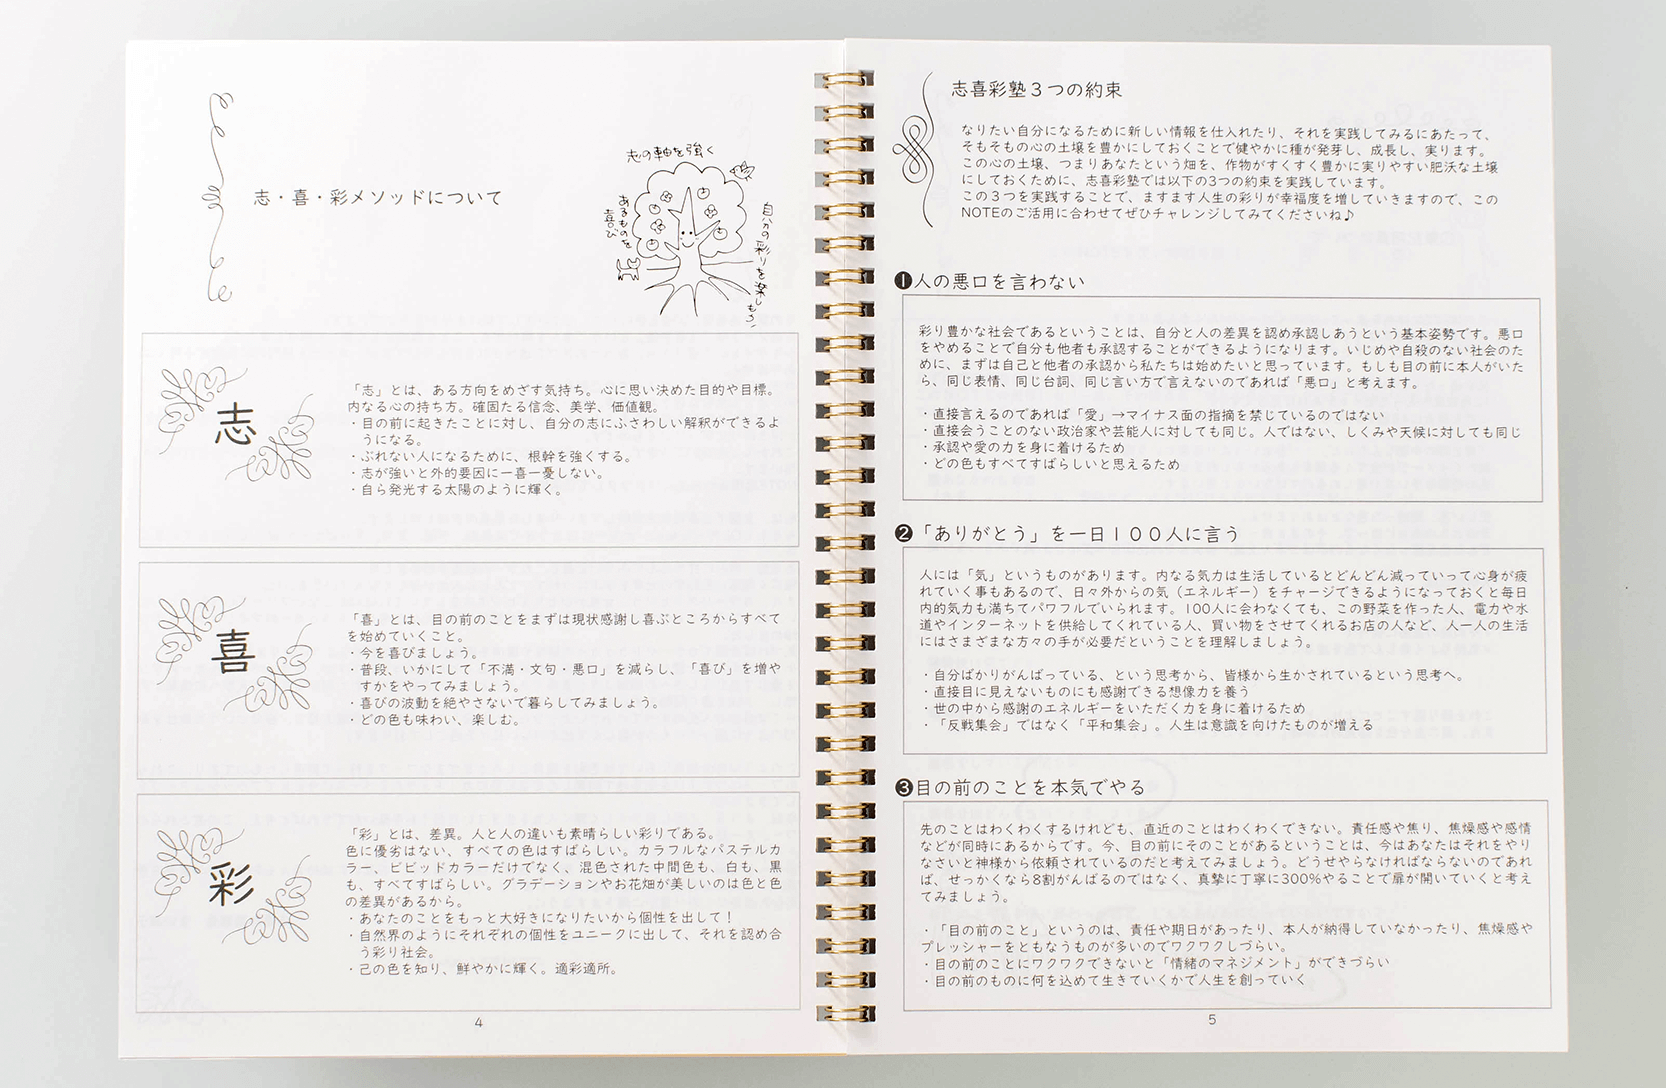 志・喜・彩メソッドについて
志の軸を強く
あるものを
喜び
自分の彩りを楽しもう!
志
「志」とは、ある方向をめざす気持ち。心に思い決めた目的や目標。
内なる心の持ち方。確固たる信念、美学、価値観。
・目の前に起きたことに対し、自分の志にふさわしい解釈ができるよ
うになる。
・ぶれない人になるために、根幹を強くする。
・志が強いと外的要因に一喜一憂しない。
・自ら発光する太陽のように輝く。
喜
「喜」とは、目の前のことをまずは現状感謝し喜ぶところからすべて
を始めていくこと。
・今を喜びましょう。
・普段、いかにして「不満・文句・悪口」を減らし、「喜び」を増や
すかをやってみましょう。
・喜びの波動を絶やさないで暮らしてみましょう。
・どの色も味わい、楽しむ。
彩
「彩」とは、差異。人と人の違いも素晴らしい彩りである。
色に優劣はない、すべての色はすばらしい。カラフルなパステルカ
ラー、ビビッドカラーだけでなく、混色された中間色も、白も、黒
も、すべてすばらしい。グラデーションやお花畑が美しいのは色と色
の差異があるから。
・あなたのことをもっと大好きになりたいから個性を出して!
・自然界のようにそれぞれの個性をユニークに出して、それを認め合
う彩り社会。
・己の色を知り、鮮やかに輝く。適彩適所。
4
志喜彩塾3つの約束
なりたい自分になるために新しい情報を仕入れたり、それを実践してみるにあたって、
そもそもの心の土壌を豊かにしておくことで健やかに種が発芽し、成長し、実ります。
この心の土壌、つまりあなたという畑を、作物がすくすく豊かに実りやすい肥沃な土壌
にしておくために、志喜彩塾では以下の3つの約束を実践しています。
この3つを実践することで、ますます人生の彩りが幸福度を増していきますので、この
NOTEのご活用に合わせてぜひチャレンジしてみてくださいね♪
❶人の悪口を言わない
彩り豊かな社会であるということは、自分と人の差異を認め承認しあうという基本姿勢です。悪口
をやめることで自分も他者も承認することができるようになります。いじめや自殺のない社会のた
めに、まずは自己と他者の承認から私たちは始めたいと思っています。もしも目の前に本人がいた
ら、同じ表情、同じ台詞、同じ言い方で言えないのであれば「悪口」と考えます。
・直接言えるのであれば「愛」→マイナス面の指摘を禁じているのではない
・直接会うことのない政治家や芸能人に対しても同じ。人ではない、しくみや天候に対しても同じ
・承認や愛の力を身に着けるため
・どの色もすべてすばらしいと思えるため
❷「ありがとう」を一日100人に言う
人には「気」というものがあります。内なる気力は生活しているとどんどん減っていって心身が疲
れていく事もあるので、日々外からの気（エネルギー）をチャージできるようになっておくと毎日
内的気力も満ちてパワフルでいられます。100人に会わなくても、この野菜を作った人、電力や水
道やインターネットを供給してくれている人、買い物をさせてくれるお店の人など、人一人の生活
にはさまざまな方々の手が必要だということを理解しましょう。
・自分ばかりがんばっている、という思考から、皆様から生かされているという思考へ。
・直接目に見えないものにも感謝できる想像力を養う
・世の中から感謝のエネルギーをいただく力を身に着けるため
・「反戦集会」ではなく「平和集会」。人生は意識を向けたものが増える
❸目の前のことを本気でやる
先のことはわくわくするけれども、直近のことはわくわくできない。責任感や焦り、焦燥感や感情
などが同時にあるからです。今、目の前にそのことがあるということは、今はあなたはそれをやり
なさいと神様から依頼されているのだと考えてみましょう。どうせやらなければならないのであれ
ば、せっかくなら8割がんばるのではなく、真摯に丁寧に300%やることで扉が開いていくと考え
てみましょう。
・「目の前のこと」というのは、責任や期日があったり、本人が納得していなかったり、焦燥感や
プレッシャーをともなうものが多いのでワクワクしづらい。
・目の前のことにワクワクできないと「情緒のマネジメント」ができづらい
・目の前のものに何を込めて生きていくかで人生を創っていく
5